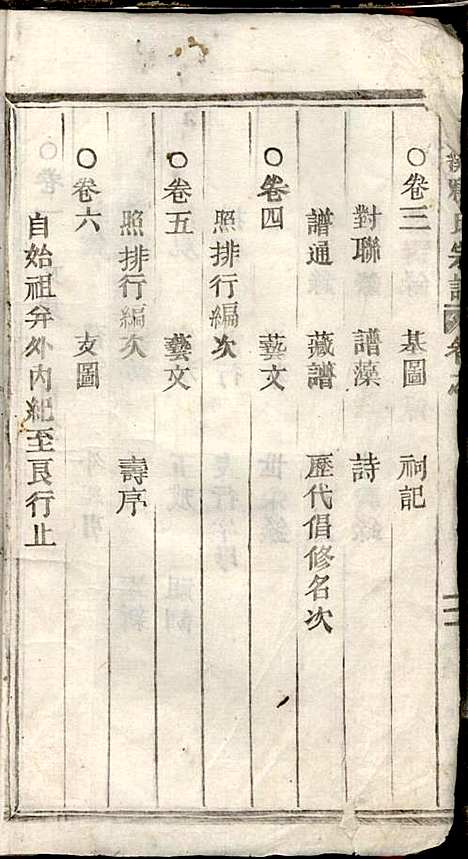 氏宗譜 卷
〇卷三 基圖 祠記
對聯 譜藻 詩
譜通 藏譜 歷代倡修名次
〇卷四 藝文
照排行編次
〇卷五 藝文
照排行編次 壽序
〇卷六 支圖
自始祖弁外內紀至艮行止